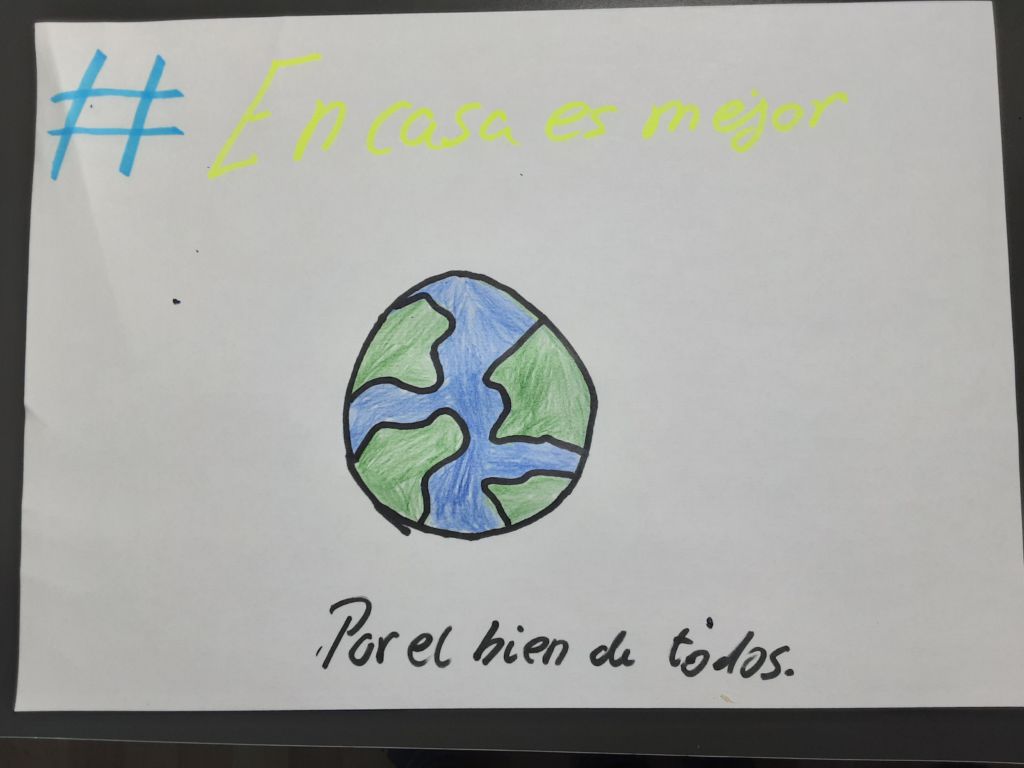 # En casa es mejor
Por el bien de todos.